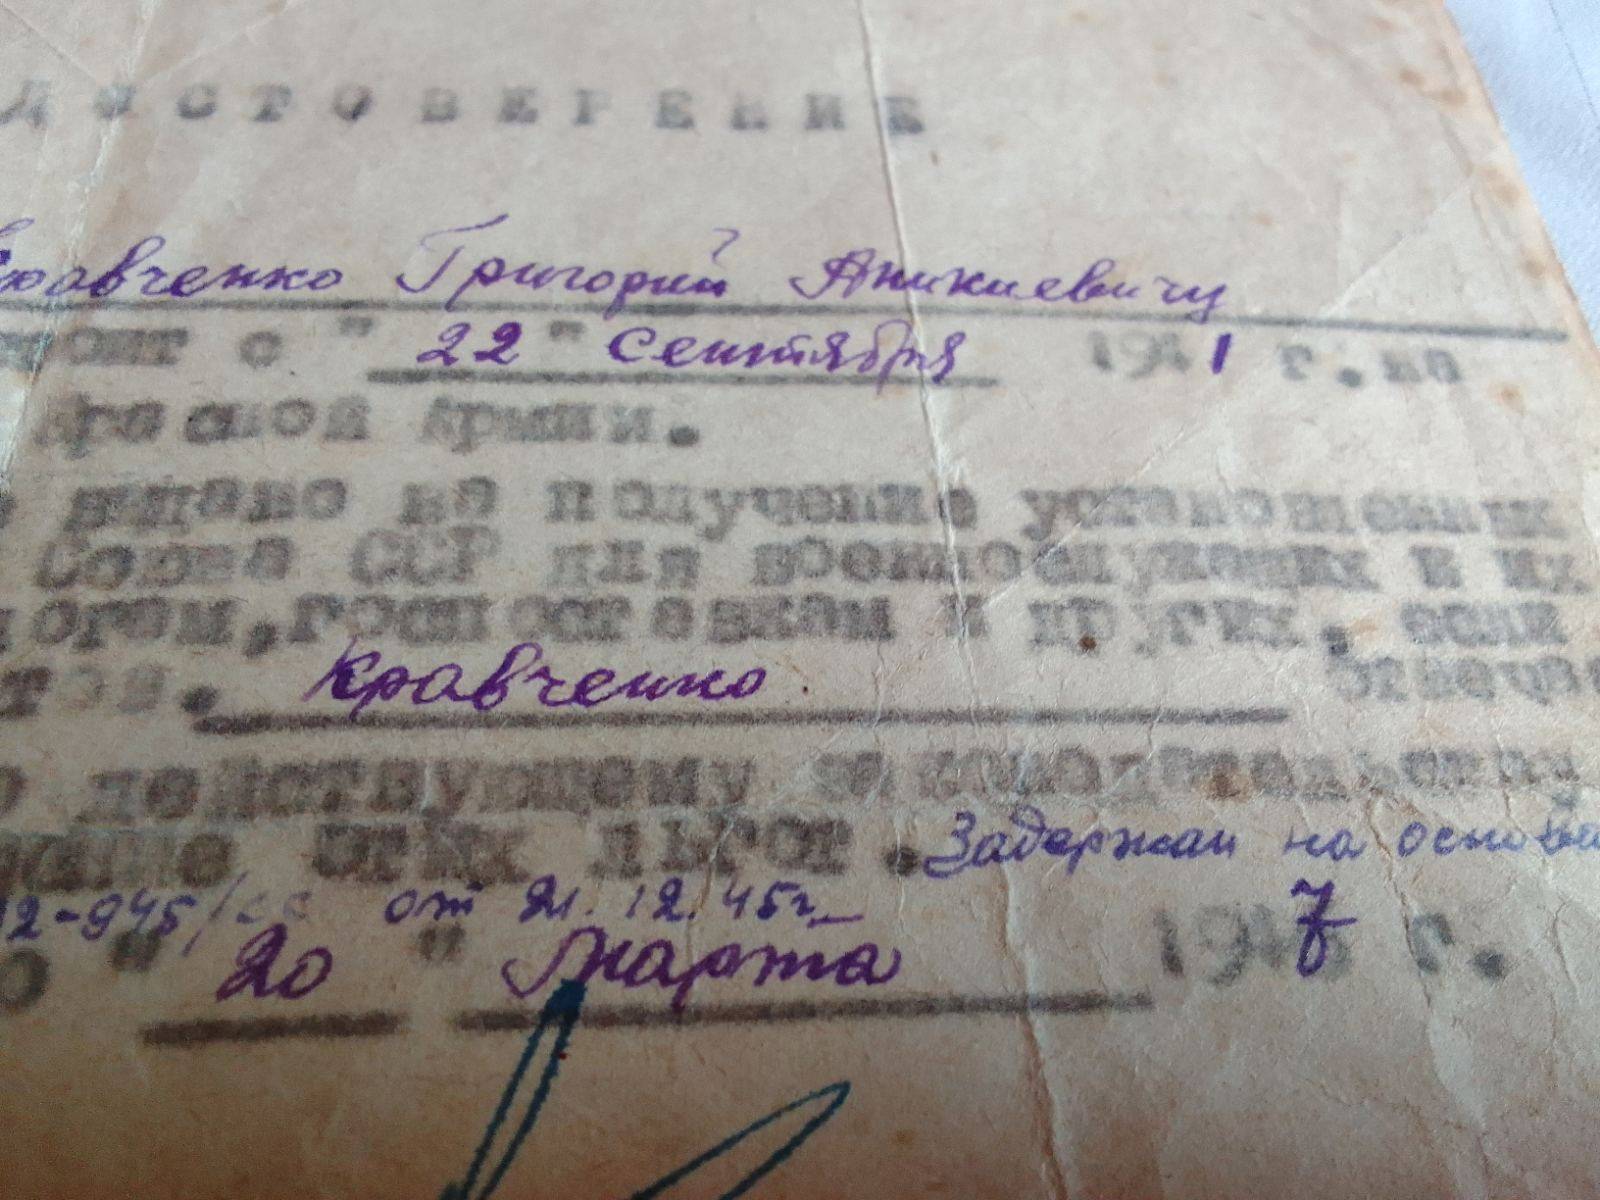 ДОСТОВЕРЕНИЕ
Кравченко Григорий Аникиевичу
с " 22 " Сентября 1941 г. на
Красной Армии.
на получение установленных
Союза ССР для военнослужащих и их
госпоставкам и других, если
Кравченко
действующему законодательству
этих льгот. Задержан на основа
12-945/сс от 21.12.45г.
" 20 " Марта 1947 г.